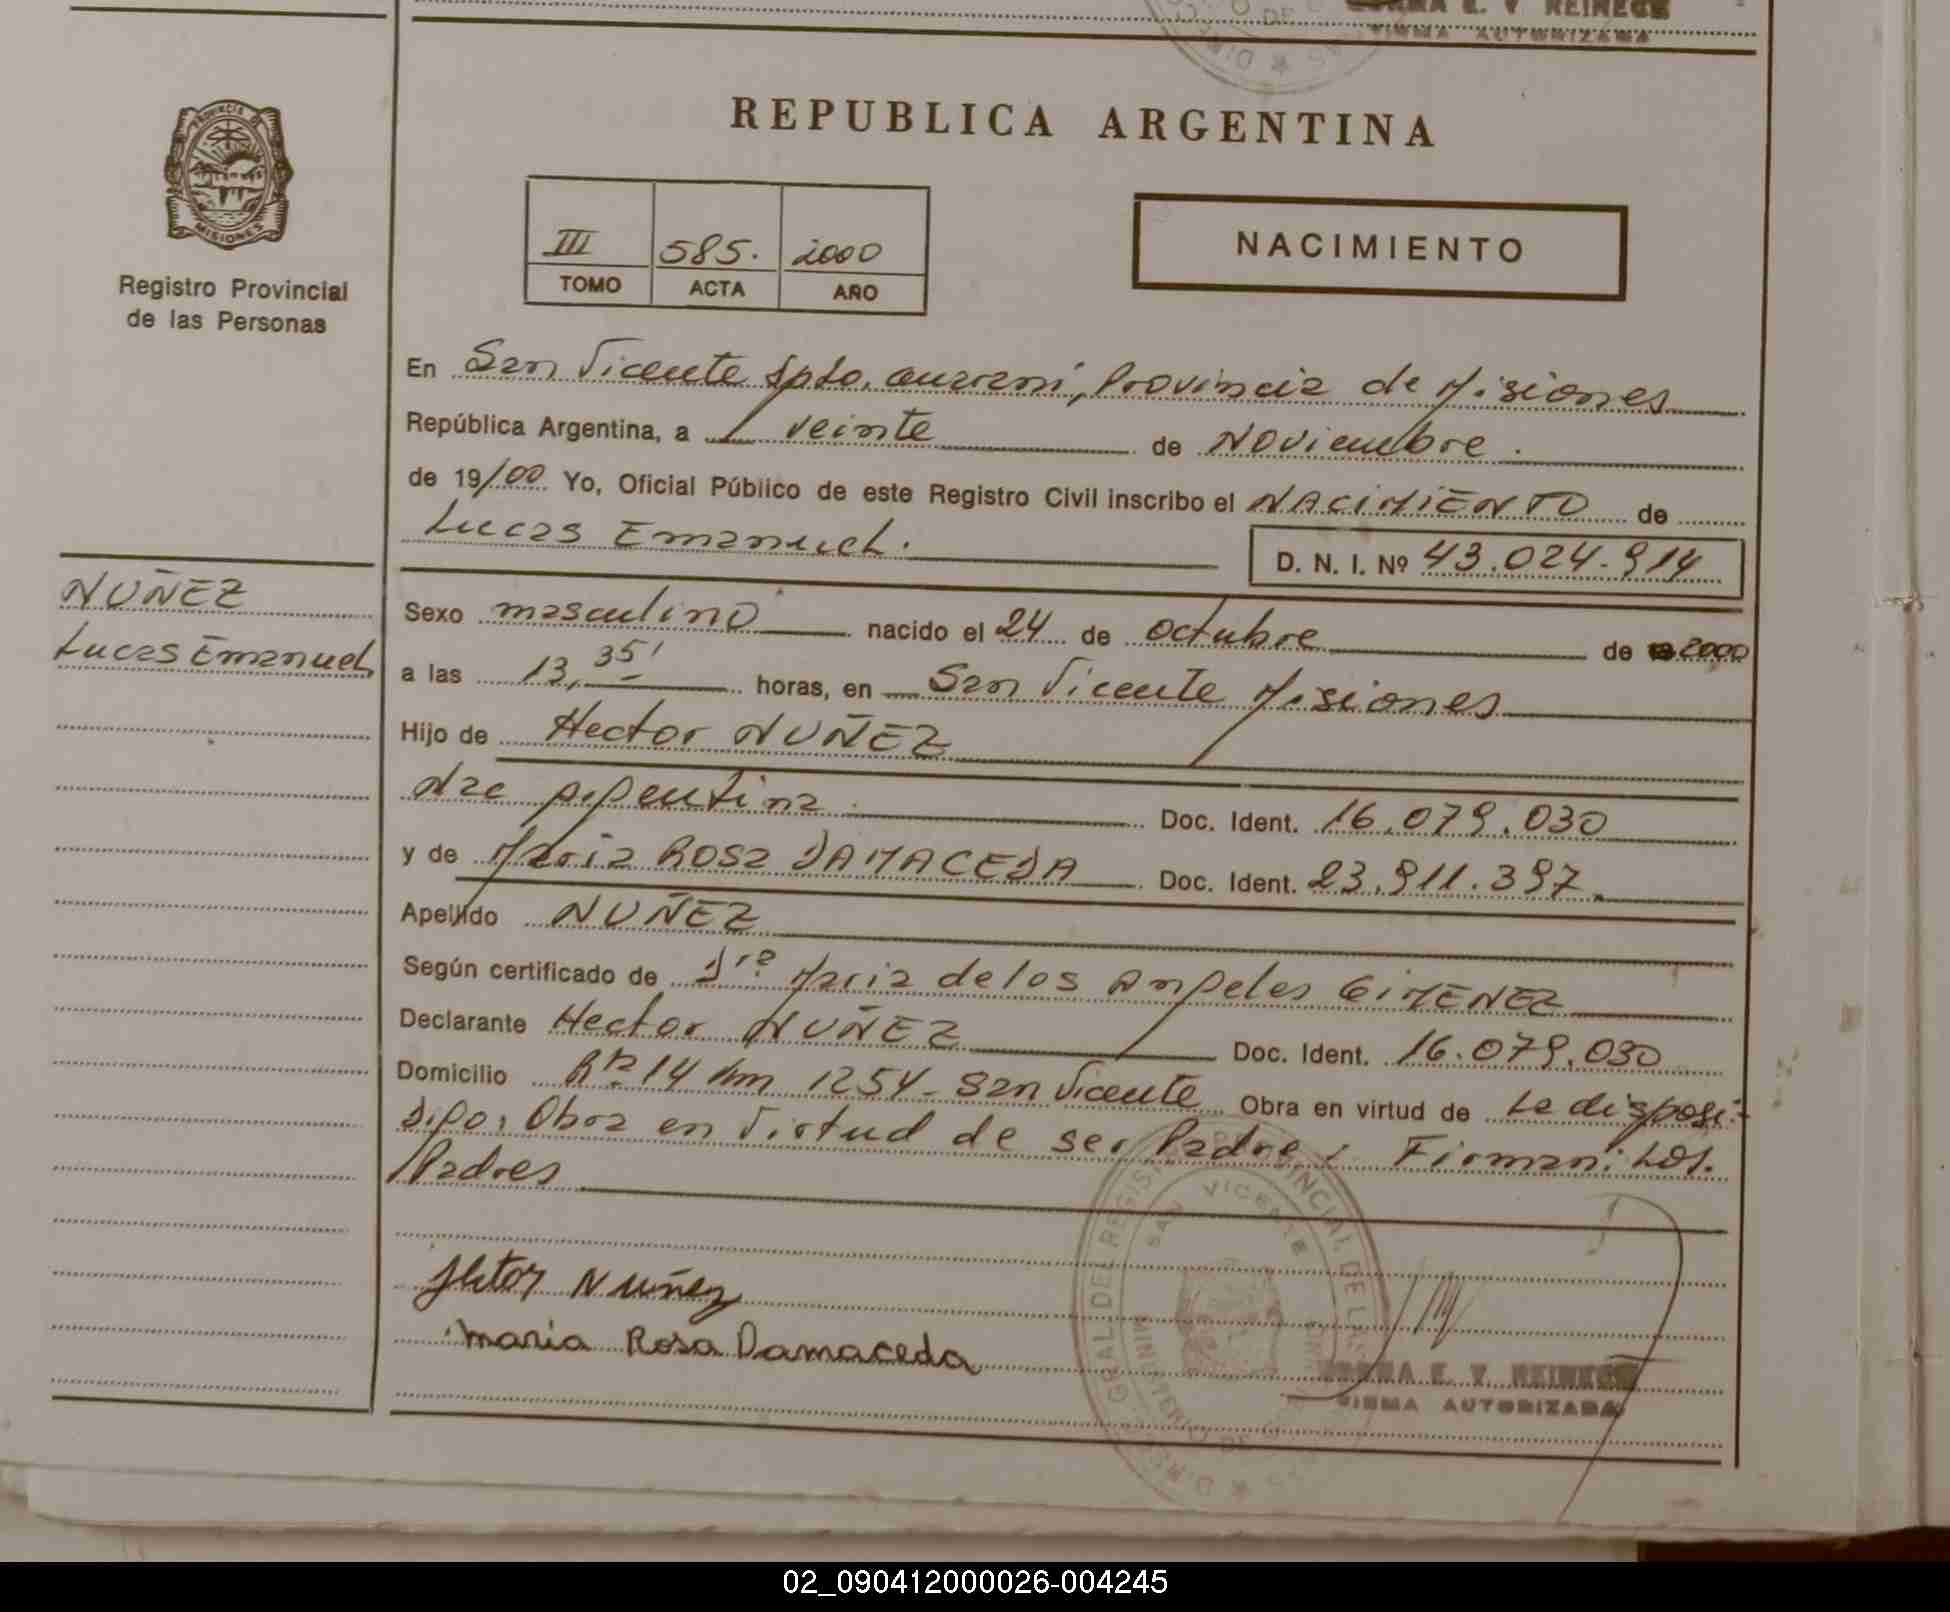 E. Y REINECK
FIRMA AUTORIZADA
REPUBLICA ARGENTINA
PROVINCIA D
MISIONES
Registro Provincial
de las Personas
III 585. 2000
TOMO ACTA AÑO
NACIMIENTO
En San Vicente Dpto. Guarani, Provincia de Misiones
República Argentina, a veinte de Noviembre.
de 19/00 Yo, Oficial Público de este Registro Civil inscribo el NACIMIENTO de
Lucas Emanuel.
D. N. I. Nº 43.024.914
NUÑEZ
Lucas Emanuel
Sexo masculino nacido el 24 de octubre de 2000
a las 13,35' horas, en San Vicente Misiones
Hijo de Hector NUÑEZ
Nac Argentina. Doc. Ident. 16.079.030
y de Maria Rosa DAMACEDA Doc. Ident. 23.911.397.
Apellido NUÑEZ
Según certificado de Dra. Maria de los Angeles GIMENEZ
Declarante Hector NUÑEZ Doc. Ident. 16.079.030
Domicilio Rta 14 km 1254- San Vicente Obra en virtud de La disposi-
Dpo, Obra en Virtud de ser Padre; Firman: Los.
Padres
Hector Nuñez
maria Rosa Damaceda
SAN VICENTE
E. Y REINECK
FIRMA AUTORIZADA
02_090412000026-004245